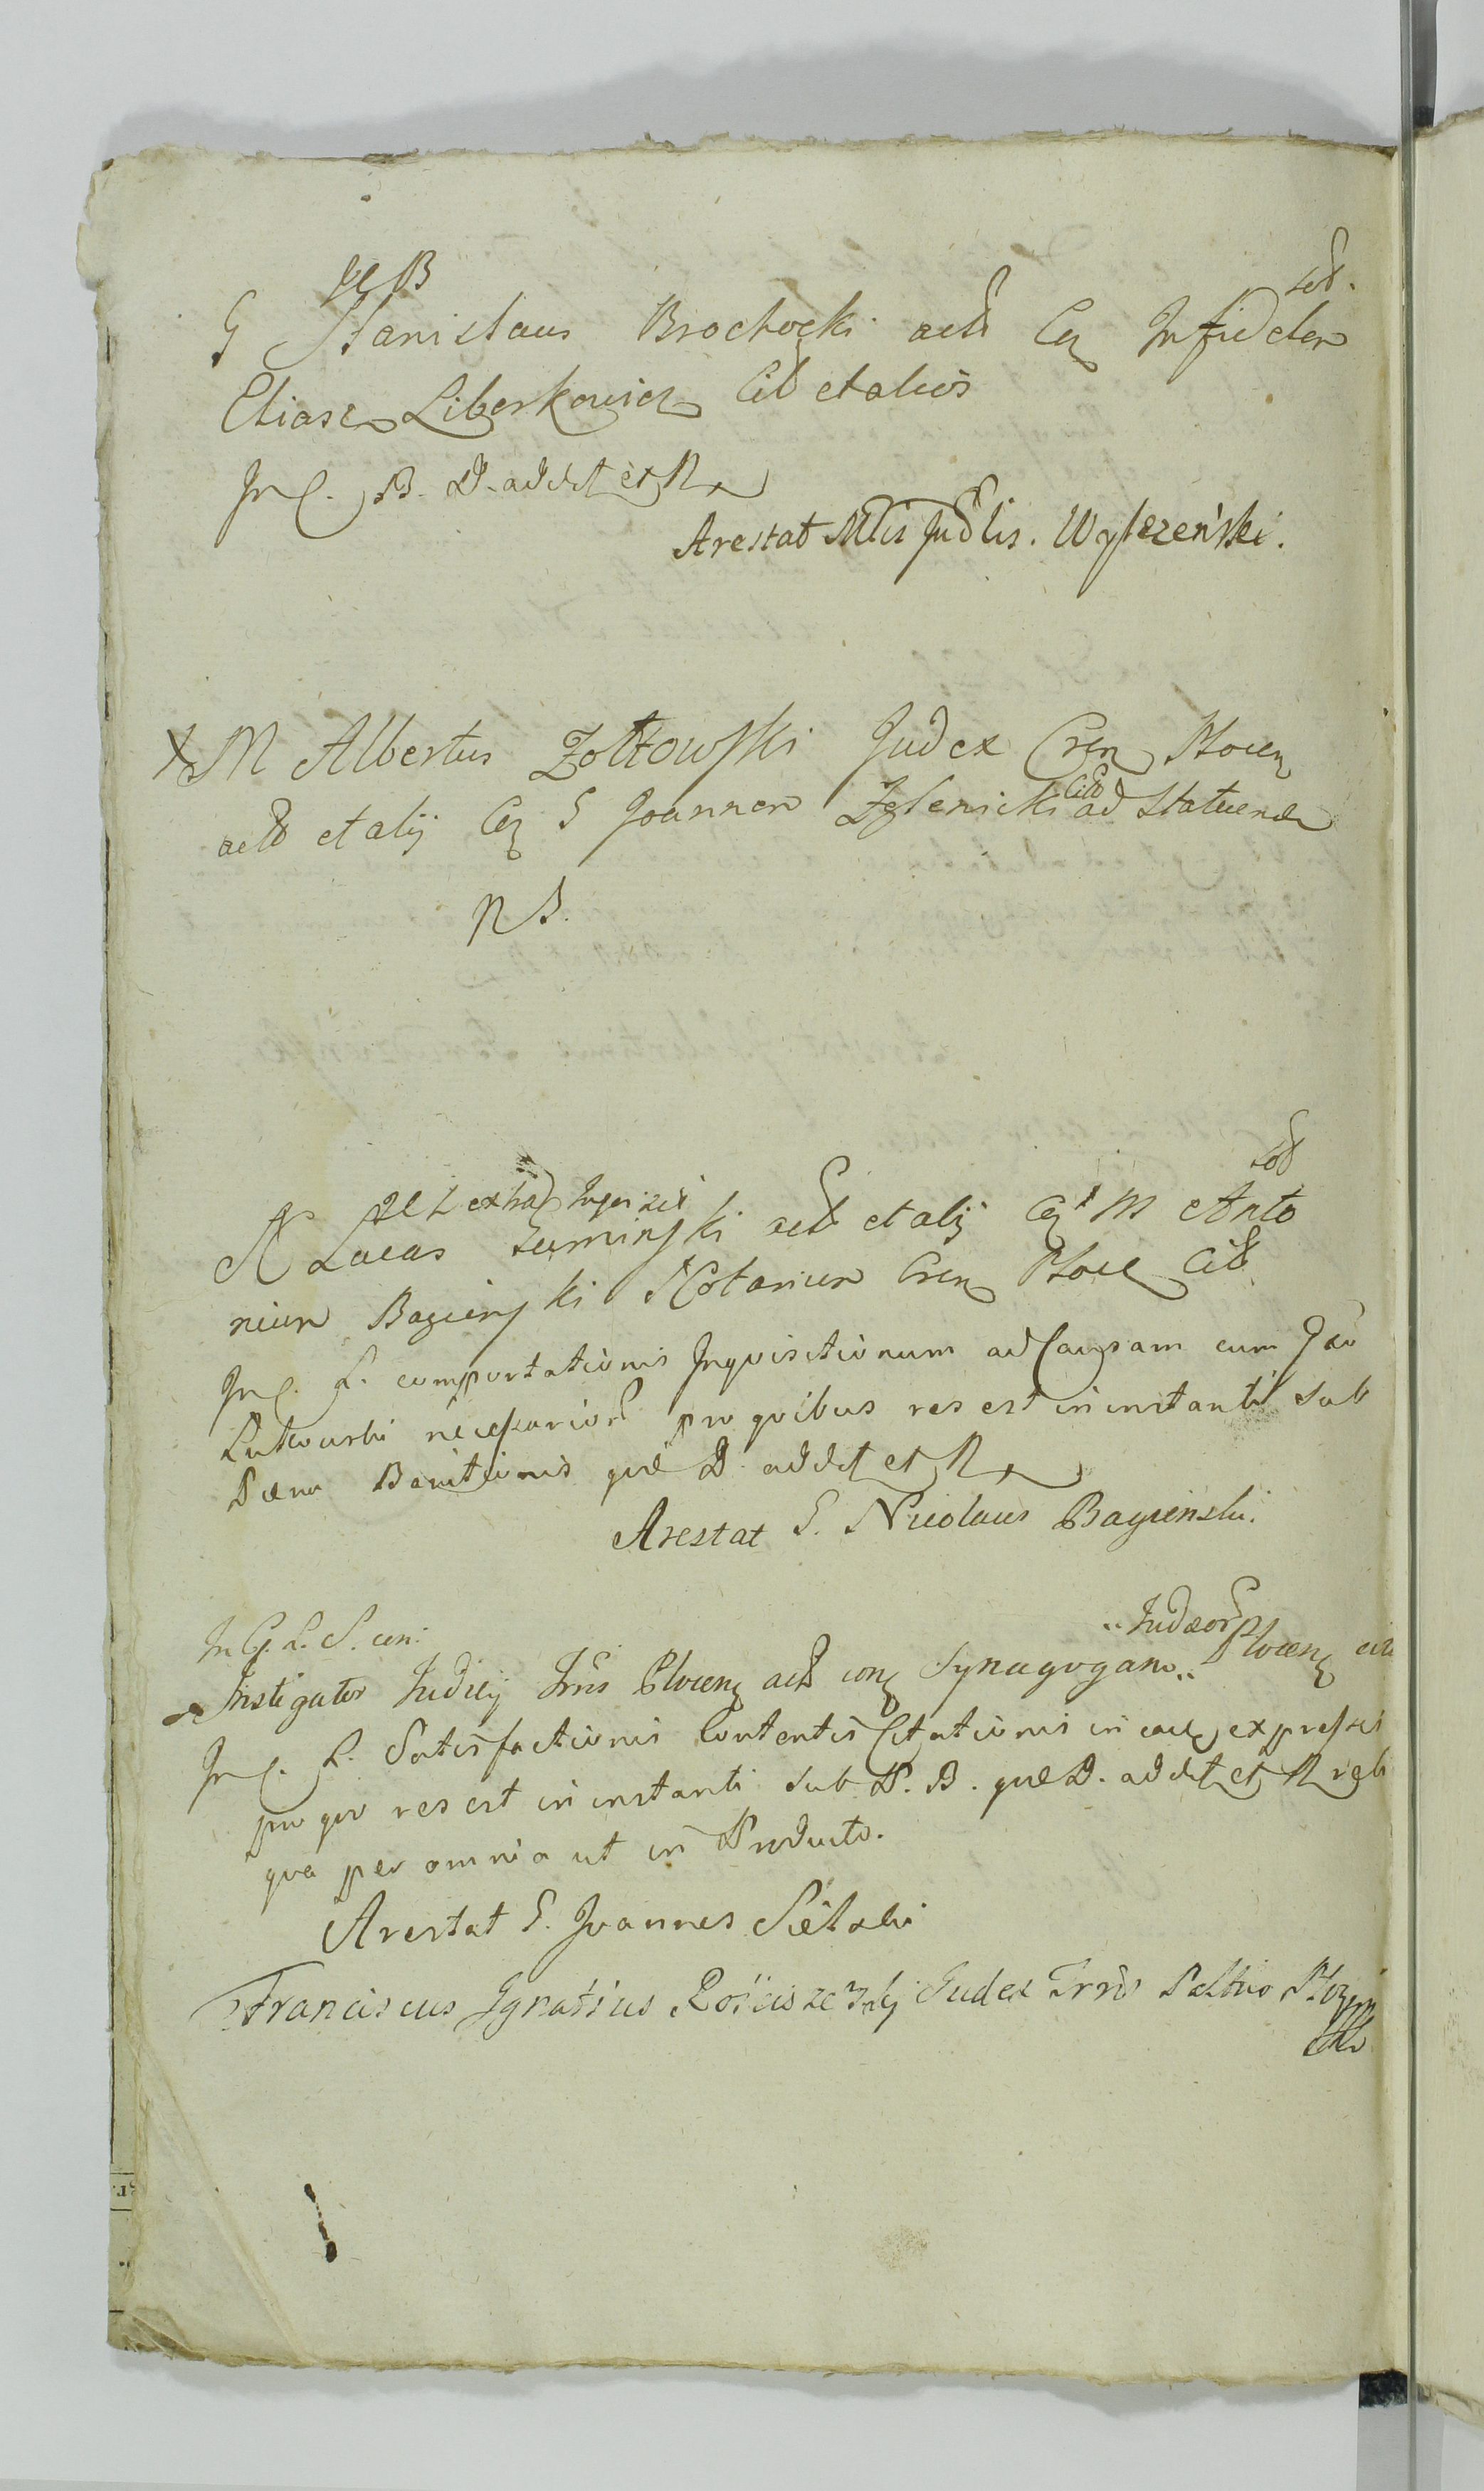 G Stanislaus Brochocki actt Cq Infidelem
Eliasz Liberkowicz Citt et alios
In C. B. D. addit et R
Arestat Mlis Judlis. Wylezeński.
X M Albertus Zołtowski Judex Cren Plocen
actt et alij Cq G Joannem Zglenicki Citt ad Statuend
N S.
N Lucas Zuminski actt et alij Cq M Anto
nium Bagienski Notarium Cren Ploc Citt
In C. L. comportationis Inquisitionum ad Causam cum Gso
Lutkowski necessarior pro quibus res est in instanti sub
Pæna Banitionis quæ D. addit et R
Arestat G. Nicolaus Bagienski.
In C. L. S. con:
Judæor
Instigator Judicij Trris Plocen actt con Synagogam Plocen citt
In C. L. Satisfactionis Contentis Citationis in eaq expressis
pro quo res est in instanti sub P. B. quæ D. addit et R reli
qua per omnia ut in Producto.
Arestat G. Joannes Sielski
Franciscus Ignatius Rościszewski Judex Trris